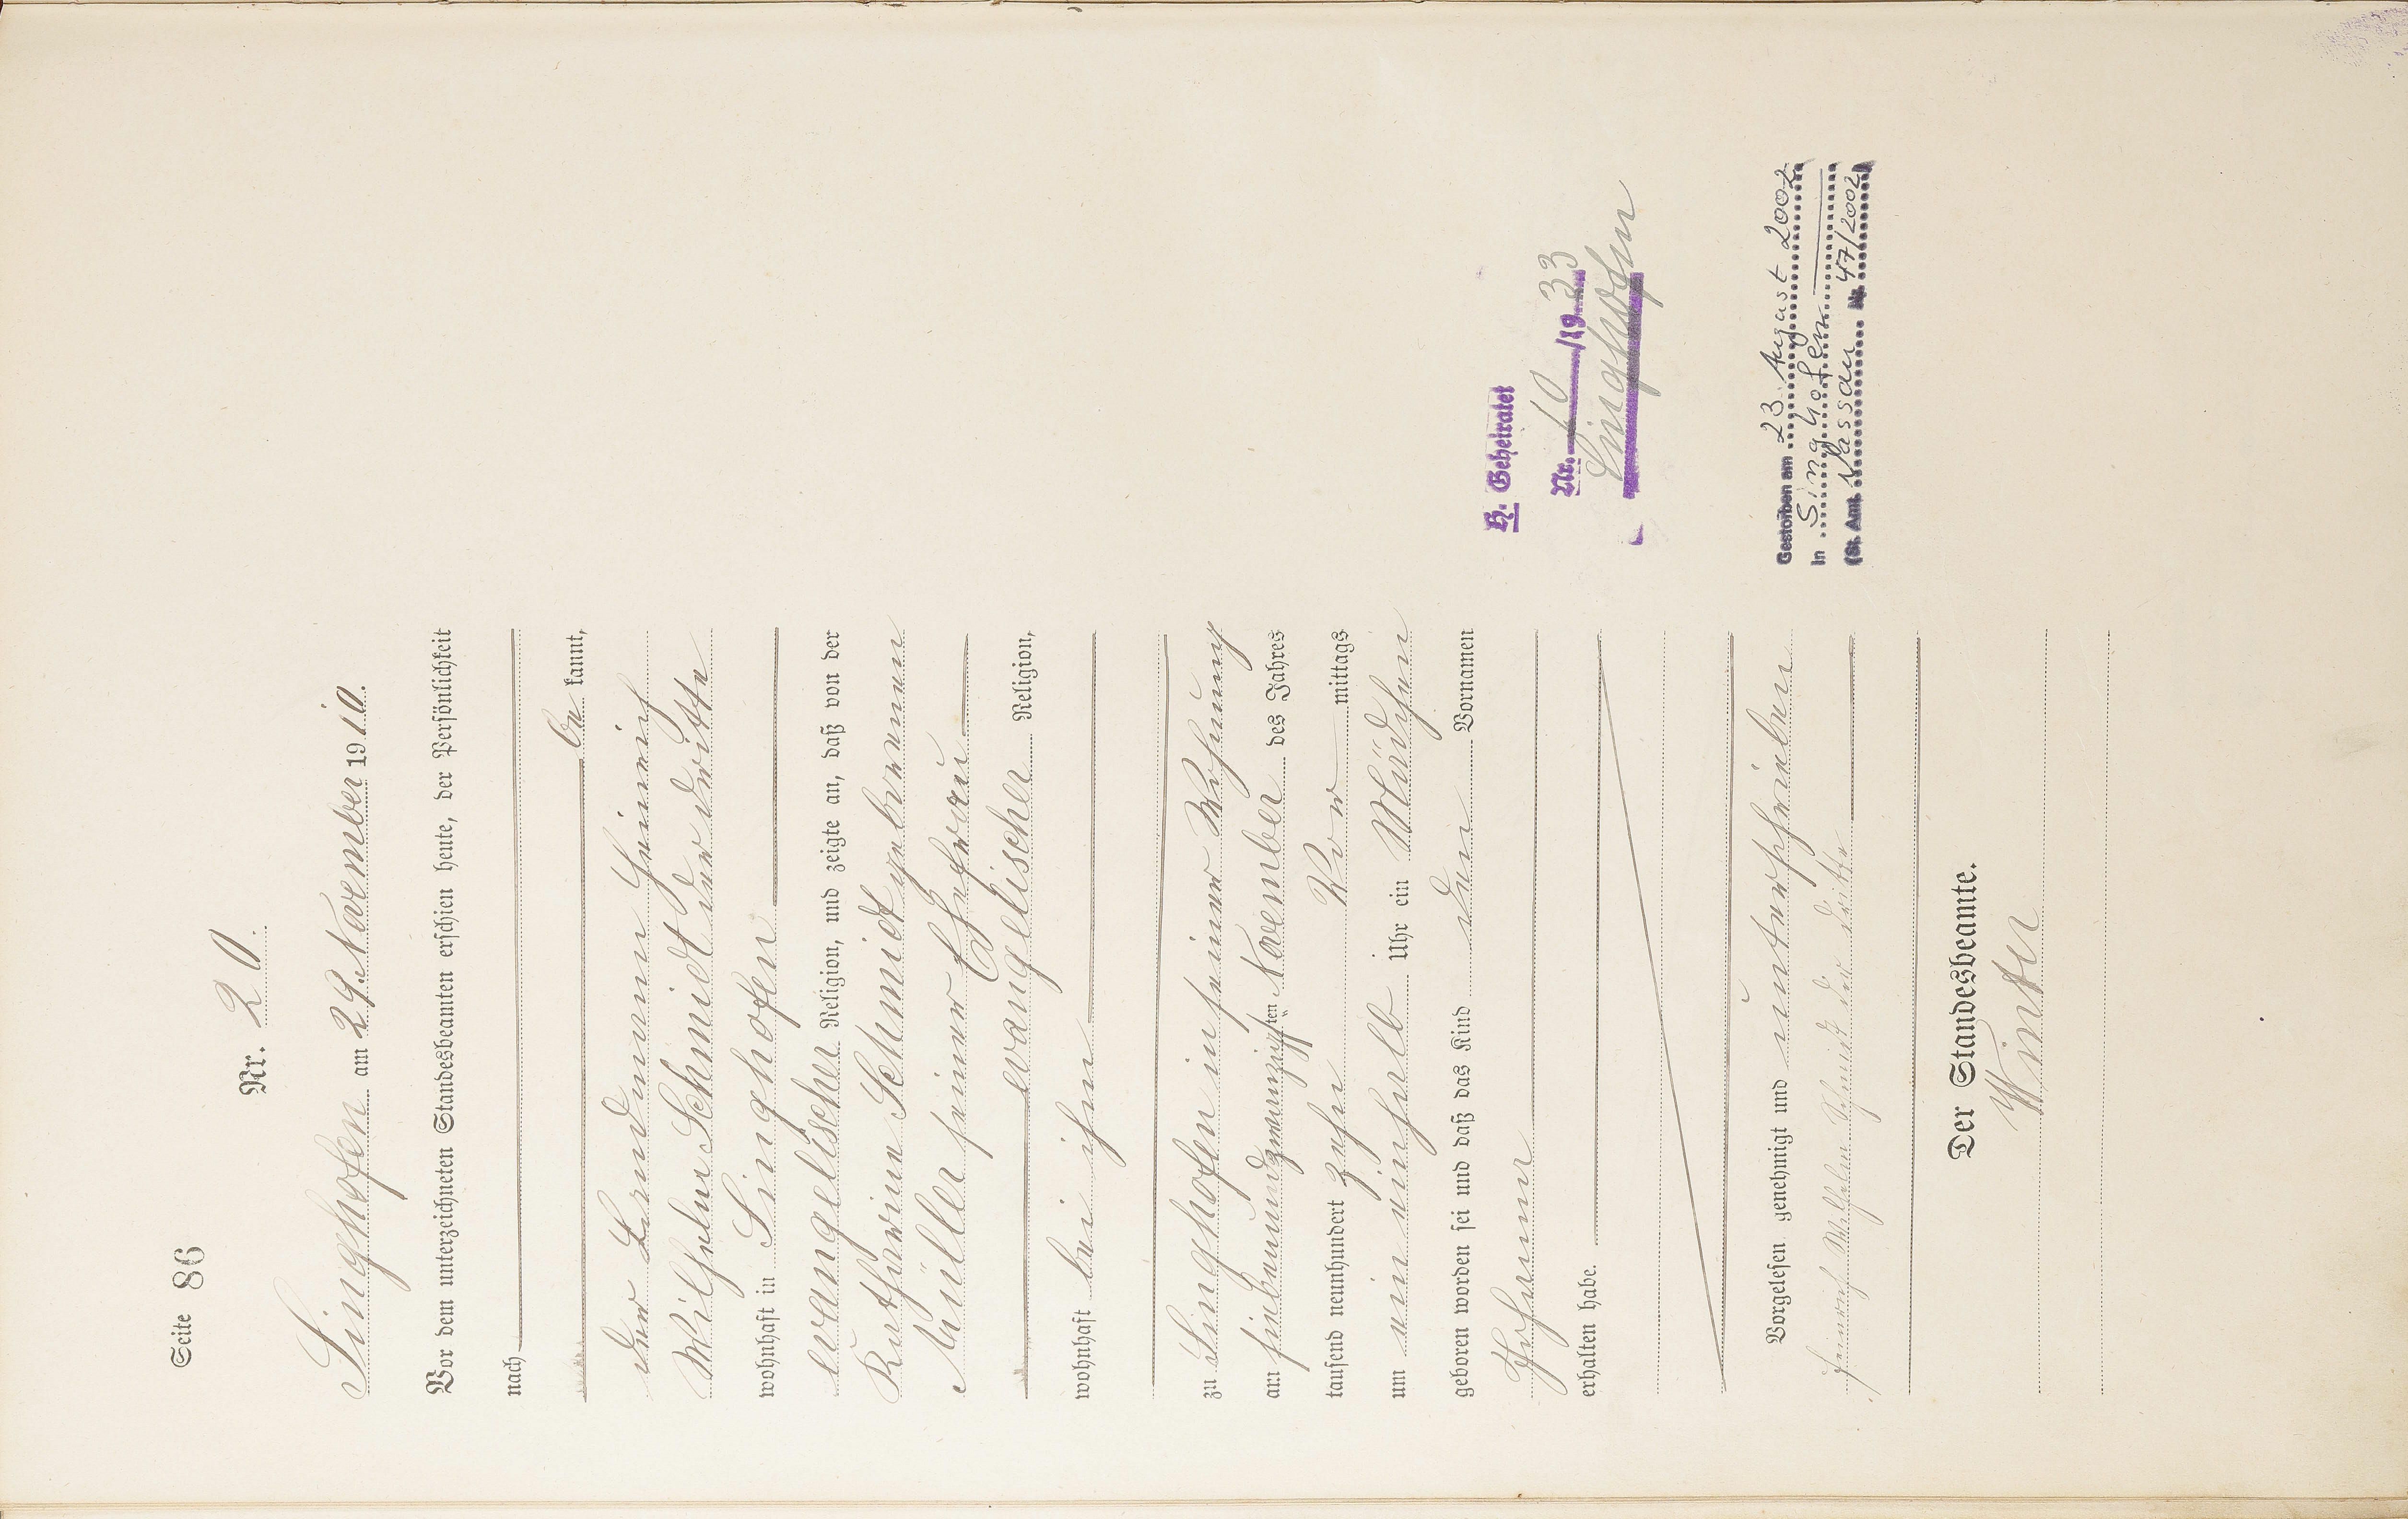 Seite 86
Nr. 20.
Singhofen am 29. November 1910.
Vor dem unterzeichneten Standesbeamten erschien heute, der Persönlichkeit
nach
be kannt,
der Landmann Heinrich
Wilhelm Schmidt der dritte
wohnhaft in Singhofen
evangelischer Religion, und zeigte an, daß von der
Katharine Schmidt geborenen
Müller seiner Ehefrau
evangelischer Religion,
wohnhaft bei ihm
zu Singhofen in seiner Wohnung
am siebenundzwanzigsten November des Jahres
tausend neunhundert zehn Vor mittags
um ein einhalb Uhr ein Mädchen
geboren worden sei und daß das Kind den Vornamen
Johanna
erhalten habe.
Vorgelesen, genehmigt und unterschrieben
Heinrich Wilhelm Schmidt der dritte
Der Standesbeamte.
Winter
H. Geheiratet
Nr. 10 /1933
Singhofen
Gestorben am 23. August 2002
in Singhofen
(St. Amt Nassau Nr. 47/2002)